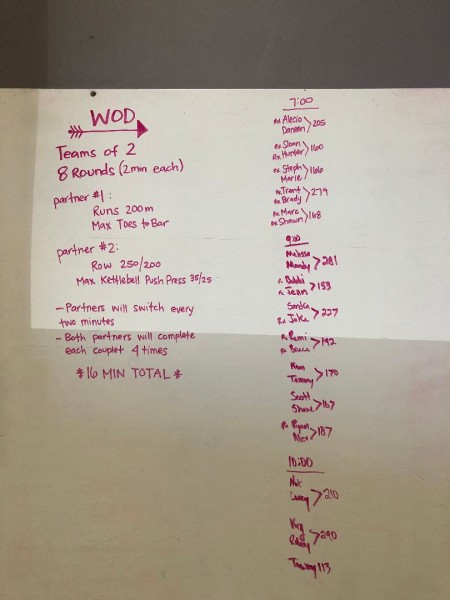 WOD
Teams of 2
8 Rounds (2min each)
partner #1:
Runs 200m
Max Toes to Bar
partner #2:
Row 250/200
Max Kettlebell Push Press 35/25
- Partners will switch every
two minutes
- Both partners will complete
each couplet 4 times
*16 MIN TOTAL*
7:00
Rx Alecio
Danean >205
Rx Sloan
Rx Hunter >160
Rx Steph
Marie >166
Rx Trent
Rx Brady >279
Rx Marc
Rx Shawn >168
9:00
Melissa
Mandy >281
Jenn >153
Sandra
Rx Jake >227
Rx Remi
Rx Bruce >192
Tammy >170
Scott
Shane >167
Rx Ryan
Alex >187
10:00
>210
>290
113